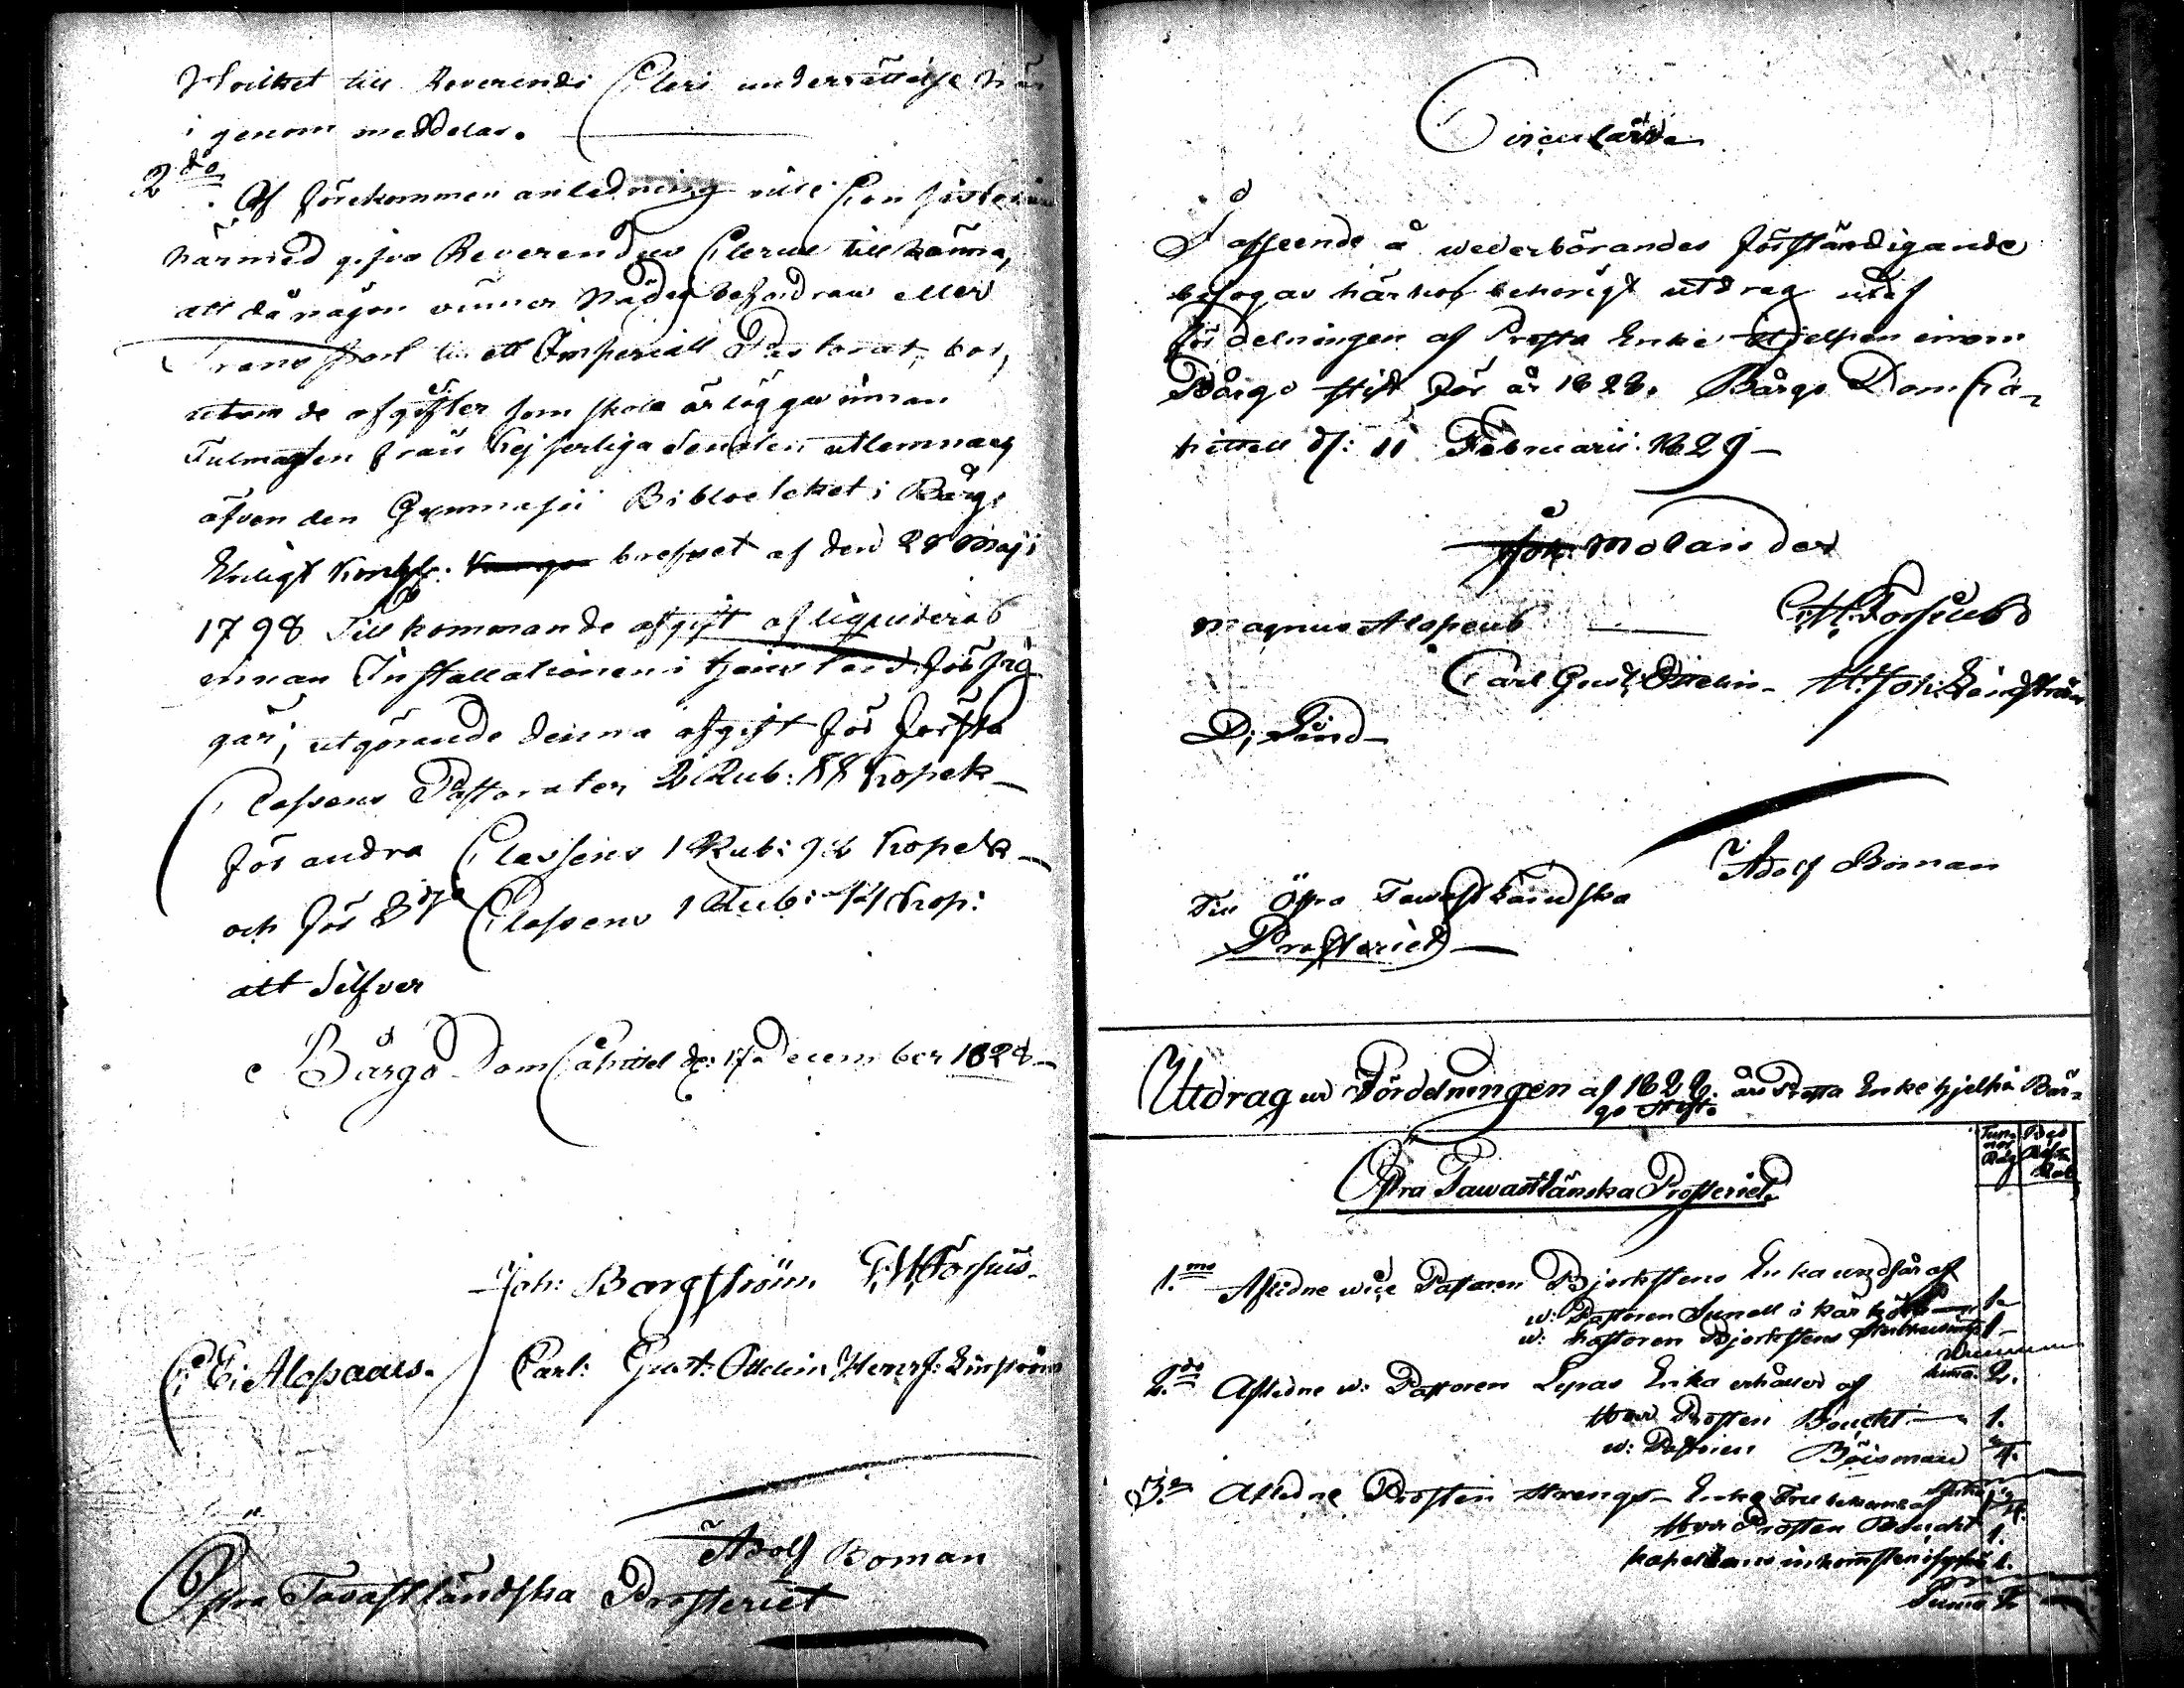 Hvilket till Reverendi Cleri underrättelse här
igenom meddelas.
2do. Af förekommen anledning vill Consistorium
härmed gifva Reverendus Clerus tillkänna,
att då någon vinner Nådig befordran eller
Transport till ett Imperiall Pastorat, bör,
utom de afgifter som skola ärläggas innan
Fulmagten från Kejserliga Senaten utlemnas,
äfven den Gymnasii Bibliotheket i Borgå
Enligt Kongl. brefvet af den 28 Maji
1798 Tillkommande afgift afliqviderad
innan Installationen i behörig ordning för sig
går; utgörande denna afgift för första
Classens Pastorater 2 Rub: 88 Kopek
för andra Classens 1 Rub: 92 Kopek
och för 3dje Classens 1 Rub: 44 Kop:
allt Silfver
Borgå Dom Capittel d: 17 December 1828
Joh: Borgström G. M. Forsius.
C. E. Alopaeus. Carl: Gust: Ottelin Henr. J:
Adolf Boman
Öfra Tavastländska Prosteriet
Circulaire
I afseende å wederbörandes förständigande
befogas härhos behörigt utdrag utaf
fördelningen af Presta Enke Hjelpen inom
Borgo stift för år 1828. Borgo Dom Ca-
pittell d: 11 Februarii 1829
Joh: Molander
Magnus Alopeus G. M. Forsius
Carl Gust: Ottelin M. Joh: Lindström
D. Lind
Adolf Boman
Till Öfra Tawastländska
Prosteriet
Utdrag ur Fördelningen af 1828 års Presta Enke hjelp i Bor-
go Stift.
Tun-
nor
Råg
Öfra Tawastlänska Prosteriet
1.mo Aflidne wice Pastoren Bjerkstens Enka undfår af
w: Pastoren Sunell i 1
w: Pastoren Bjerkstens 1
Summa 2.
2.do Aflidne w: Pastoren Lyras Enka erhåller af
Herr Prosten Boucht 1.
w: Pastoren
3. Aflidne Prosten Strengs Enka Tillkommer af
Herr Prosten Boucht 1.
Kapellans inkomsten i 1.
Summa 2